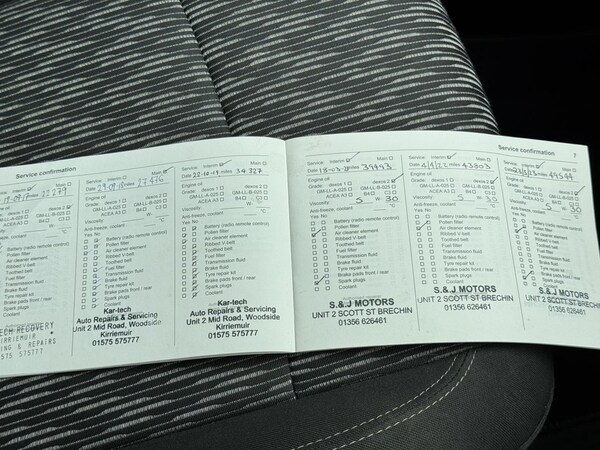 Service confirmation
Service: Interim Main
Date 19-09-17 miles 22279
Engine oil
Grade: dexos 1 dexos 2
GM-LL-A-025 GM-LL-B-025
ACEA A3 B4 C3
Viscosity: W-
Anti-freeze, coolant °C
Yes No
Battery (radio remote control)
Pollen filter
Air cleaner element
Ribbed V-belt
Toothed belt
Fuel filter
Transmission fluid
Brake fluid
Tyre repair kit
Brake pads front / rear
Spark plugs
Coolant
TECH RECOVERY
KIRRIEMUIR
& REPAIRS
575 575777
Service: Interim Main
Date miles 27,476
Engine oil
Grade: dexos 1 dexos 2
GM-LL-A-025 GM-LL-B-025
ACEA A3 B4 C3
Viscosity: W-
Anti-freeze, coolant °C
Yes No
Battery (radio remote control)
Pollen filter
Air cleaner element
Ribbed V-belt
Toothed belt
Fuel filter
Transmission fluid
Brake fluid
Tyre repair kit
Brake pads front / rear
Spark plugs
Coolant
Kar-tech
Auto Repairs & Servicing
Unit 2 Mid Road, Woodside
Kirriemuir
01575 575777
Service: Interim Main
Date 22-10-19 miles 34,727
Engine oil
Grade: dexos 1 dexos 2
GM-LL-A-025 GM-LL-B-025
ACEA A3 B4 C3
Viscosity: W-
Anti-freeze, coolant °C
Yes No
Battery (radio remote control)
Pollen filter
Air cleaner element
Ribbed V-belt
Toothed belt
Fuel filter
Transmission fluid
Brake fluid
Tyre repair kit
Brake pads front / rear
Spark plugs
Coolant
Kar-tech
Auto Repairs & Servicing
Unit 2 Mid Road, Woodside
Kirriemuir
01575 575777
Service confirmation 7
Service: Interim Main
Date 18-03-21 miles 39493
Engine oil
Grade: dexos 1 dexos 2
GM-LL-A-025 GM-LL-B-025
ACEA A3 B4 C3
Viscosity: 5 W- 30
Anti-freeze, coolant °C
Yes No
Battery (radio remote control)
Pollen filter
Air cleaner element
Ribbed V-belt
Toothed belt
Fuel filter
Transmission fluid
Brake fluid
Tyre repair kit
Brake pads front / rear
Spark plugs
Coolant
S.& J MOTORS
UNIT 2 SCOTT ST BRECHIN
01356 626461
Service: Interim Main
Date 4/4/22 miles 43803
Engine oil
Grade: dexos 1 dexos 2
GM-LL-A-025 GM-LL-B-025
ACEA A3 B4 C3
Viscosity: 5 W- 30
Anti-freeze, coolant °C
Yes No
Battery (radio remote control)
Pollen filter
Air cleaner element
Ribbed V-belt
Toothed belt
Fuel filter
Transmission fluid
Brake fluid
Tyre repair kit
Brake pads front / rear
Spark plugs
Coolant
S.& J MOTORS
UNIT 2 SCOTT ST BRECHIN
01356 626461
Service: Interim Main
Date miles 49544
Engine oil
Grade: dexos 1 dexos 2
GM-LL-A-025 GM-LL-B-025
ACEA A3 B4 C3
Viscosity: 5 W- 30
Anti-freeze, coolant °C
Yes No
Battery (radio remote control)
Pollen filter
Air cleaner element
Ribbed V-belt
Toothed belt
Fuel filter
Transmission fluid
Brake fluid
Tyre repair kit
Brake pads front / rear
Spark plugs
Coolant
S.& J MOTORS
UNIT 2 SCOTT ST BRECHIN
01356 626461